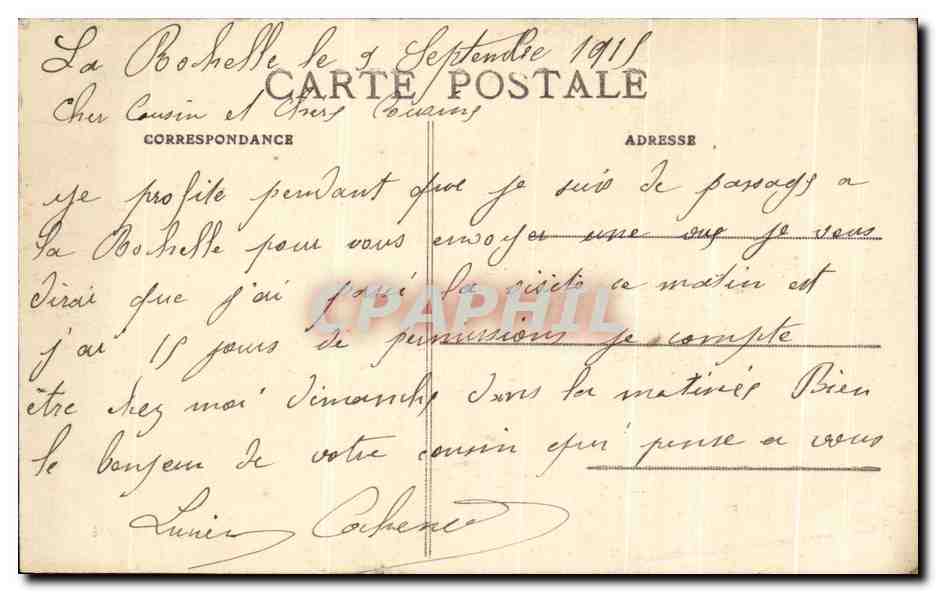 La Rochelle le 9 Septembre 1915
CARTE POSTALE
Cher Cousin et Chers Cousins
CORRESPONDANCE
ADRESSE
Je profite pendant que je suis de passage a
la Rochelle pour vous envoyer une vue je vous
dirai que j'ai passé la visite ce matin est
j'ai 15 jours de permissions je compte
être chez moi dimanche dans la matinée Bien
le bonjour de votre cousin qui pense a vous
Lucien
CPAPHIL